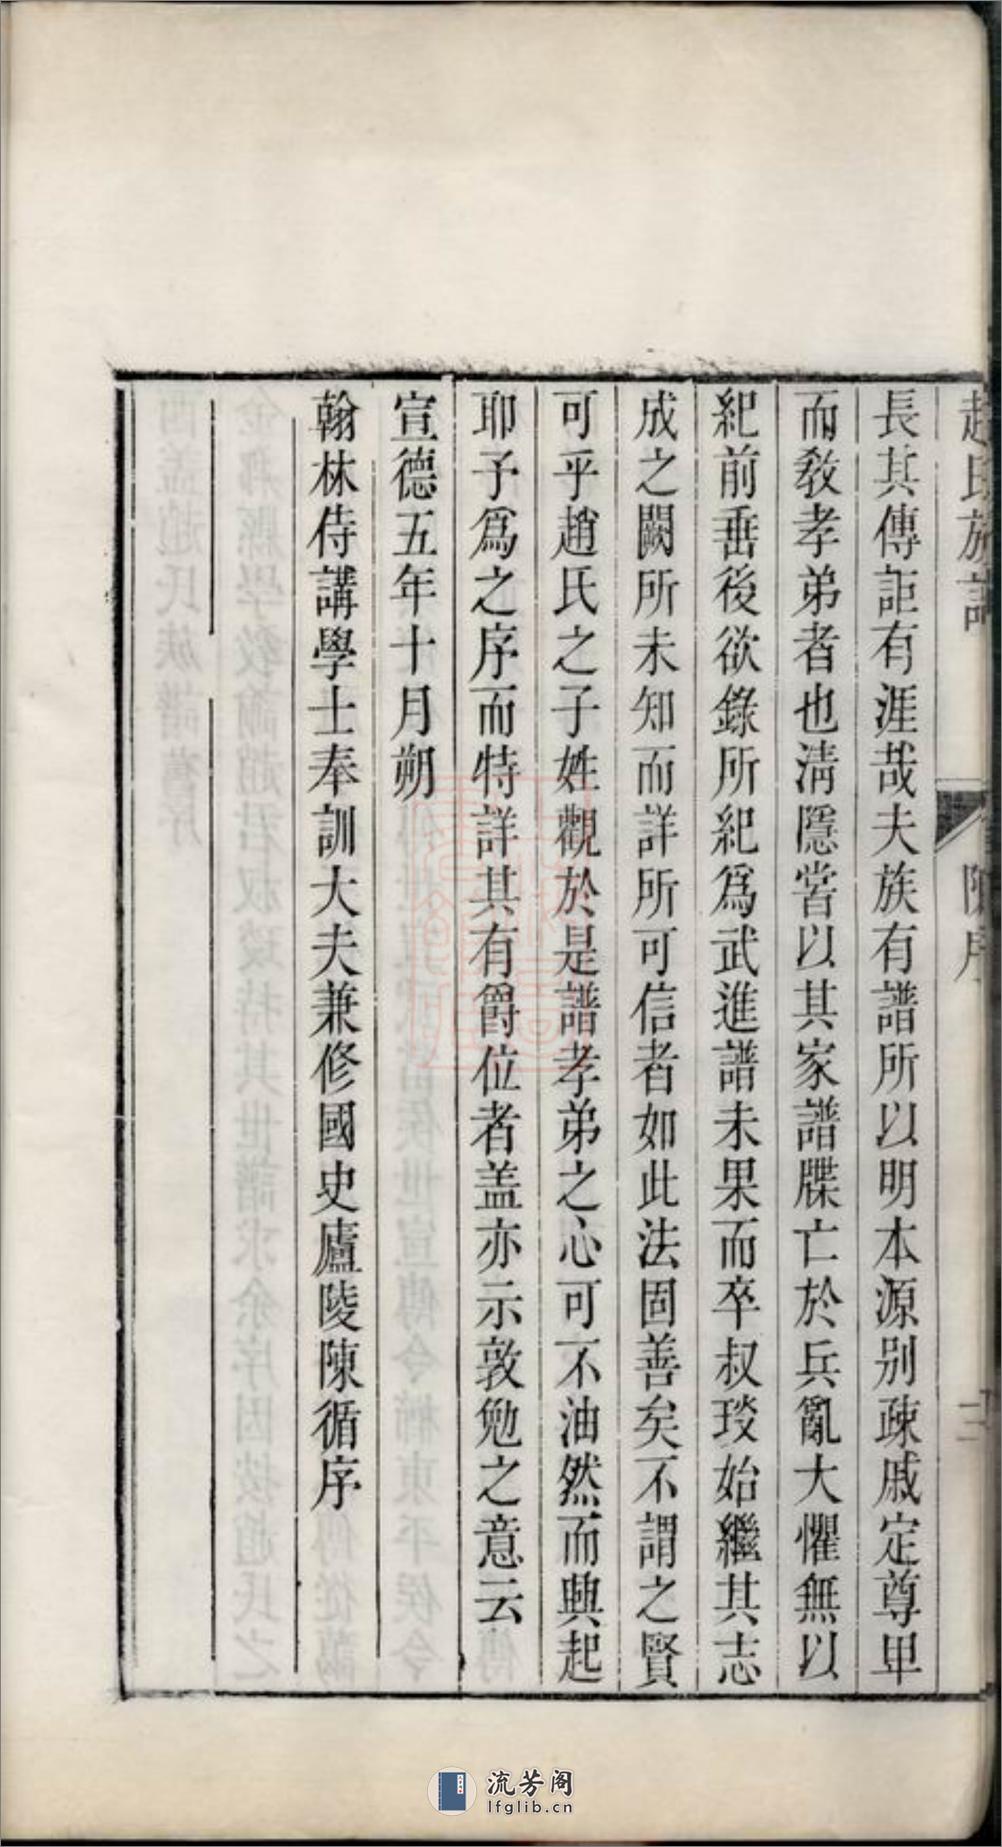 趙氏族譜
陳序
二
長其傳詎有涯哉夫族有譜所以明本源别疎戚定尊卑
而敎孝弟者也淸隱嘗以其家譜牒亡於兵亂大懼無以
紀前垂後欲錄所紀爲武進譜未果而卒叔琰始繼其志
成之闕所未知而詳所可信者如此法固善矣不謂之賢
可乎趙氏之子姓觀於是譜孝弟之心可不油然而興起
耶予爲之序而特詳其有爵位者盖亦示敦勉之意云
宣德五年十月朔
翰林侍講學士奉訓大夫兼修國史廬陵陳循序
流芳阁
lfglib.cn